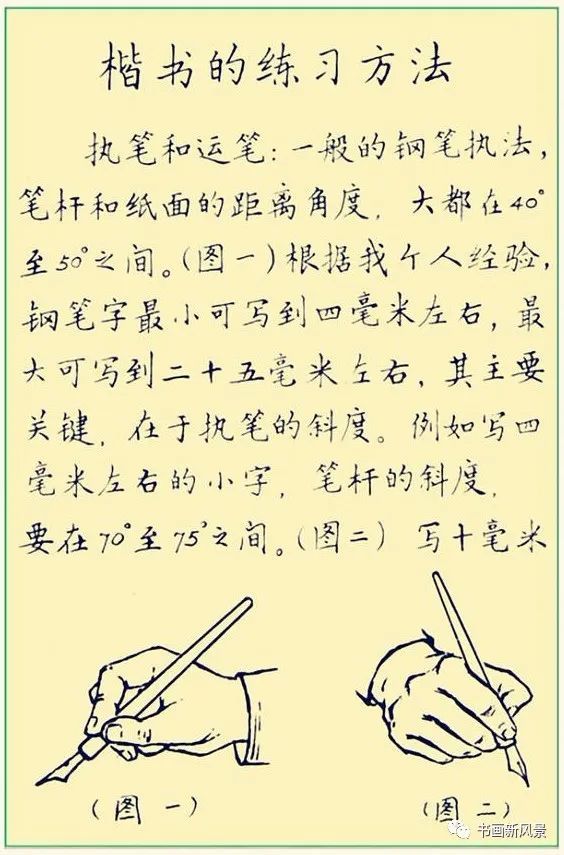 楷书的练习方法
执笔和运笔:一般的钢笔执法,
笔杆和纸面的距离角度,大都在40°
至50°之间。(图一)根据我个人经验,
钢笔字最小可写到四毫米左右,最
大可写到二十五毫米左右,其主要
关键,在于执笔的斜度。例如写四
毫米左右的小字,笔杆的斜度,
要在70°至75°之间。(图二) 写十毫米
(图一)
(图二)
书画新风景